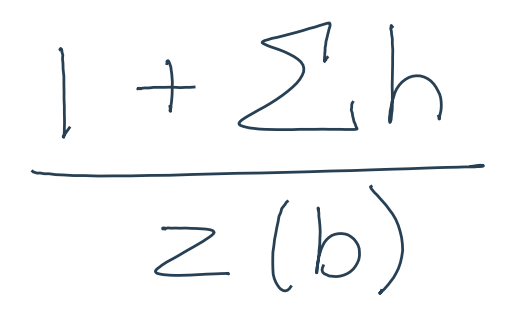 1 + ∑h
z(b)